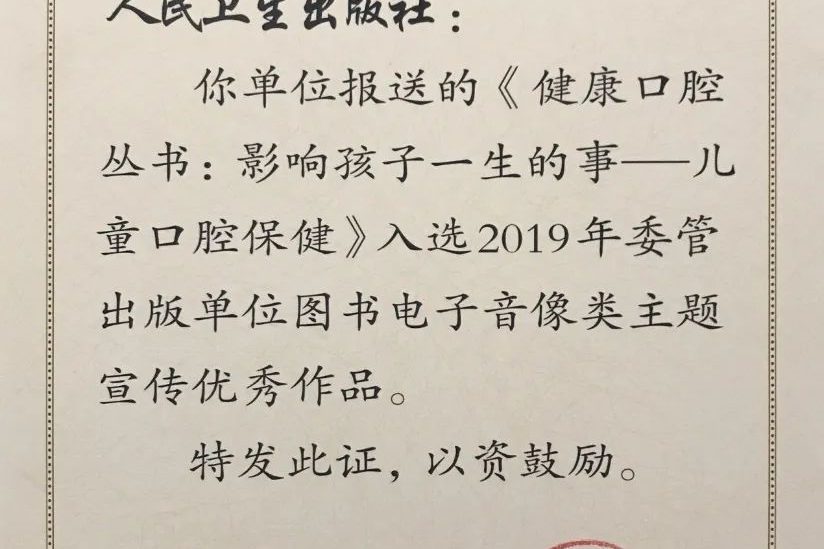 人民卫生出版社：
你单位报送的《健康口腔
丛书：影响孩子一生的事——儿
童口腔保健》入选2019年委管
出版单位图书电子音像类主题
宣传优秀作品。
特发此证，以资鼓励。